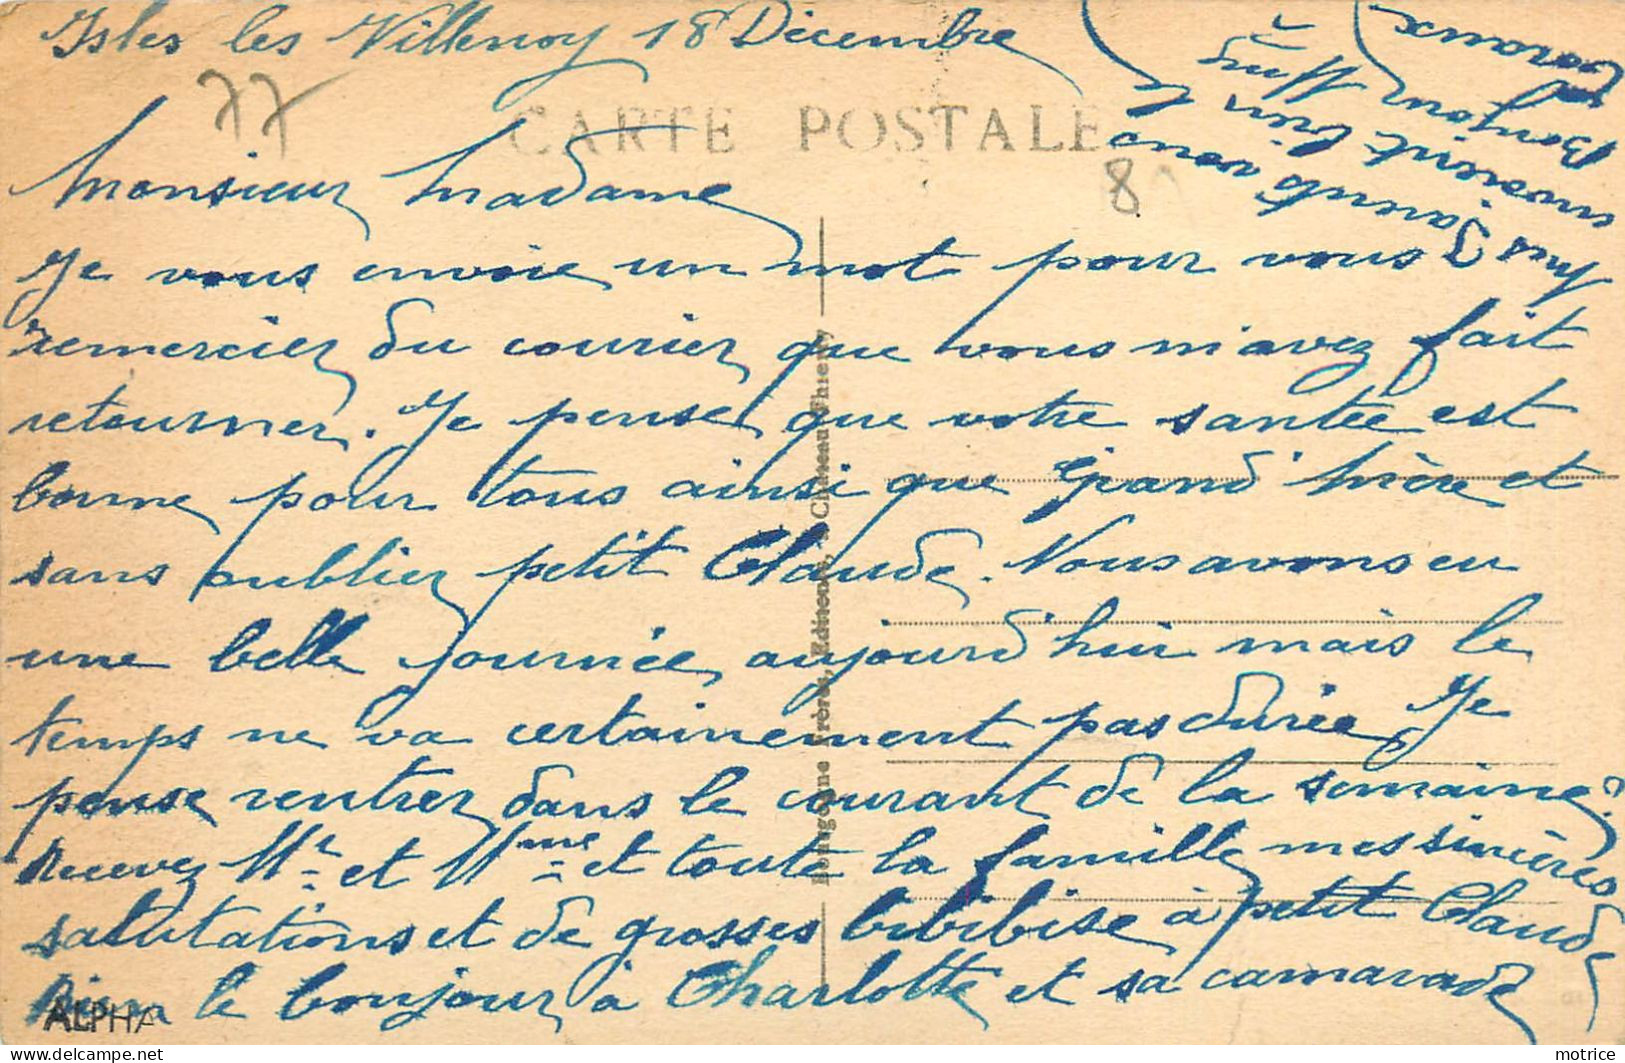 Isles les Villenoy 18 Décembre
77
CARTE POSTALE
8
Monsieur Madame
Je vous envoie un mot pour vous
remercier du courier que vous m'avez fait
retourner. Je pense que votre santée est
bonne pour tous ainsi que Grand'Mère et
sans oublier petit Claude. Nous avons eu
une belle journée aujourd'hui mais le
temps ne va certainement pas durée. Je
pense rentrer dans le courant de la semaine.
Recevez Mr et Mme et toute la famille mes sincères
salutations et de grosses bibibise à petit Claude
Bien le bonjour à Charlotte et sa camarade
Mes Parents vous
envoient bien le
Bonjour
Bourgogne Frères, Éditeurs, Château-Thierry
ALPHA
motrice